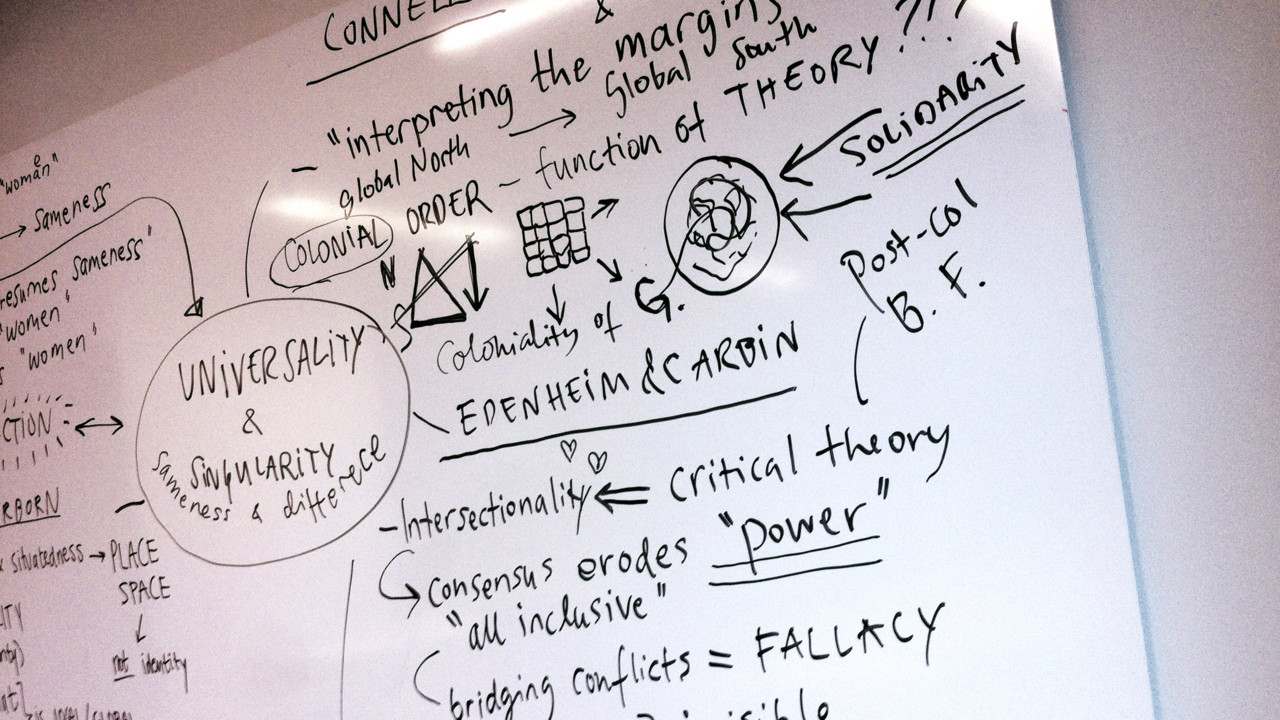 &
- "interpreting the margins
global North → Global South
COLONIAL ORDER - function of THEORY???
SOLIDARITY
N
S
Coloniality of G.
Post-col
B. F.
"woman"
e
→ Sameness
sameness"
"women"
"women"
UNIVERSALITY
&
SINGULARITY
sameness & differece
↔
EDENHEIM & CARBIN
- Intersectionality ⇐ critical theory
consensus erodes "power"
"all inclusive"
bridging conflicts = FALLACY
situatedness → PLACE
SPACE
↓
not identity